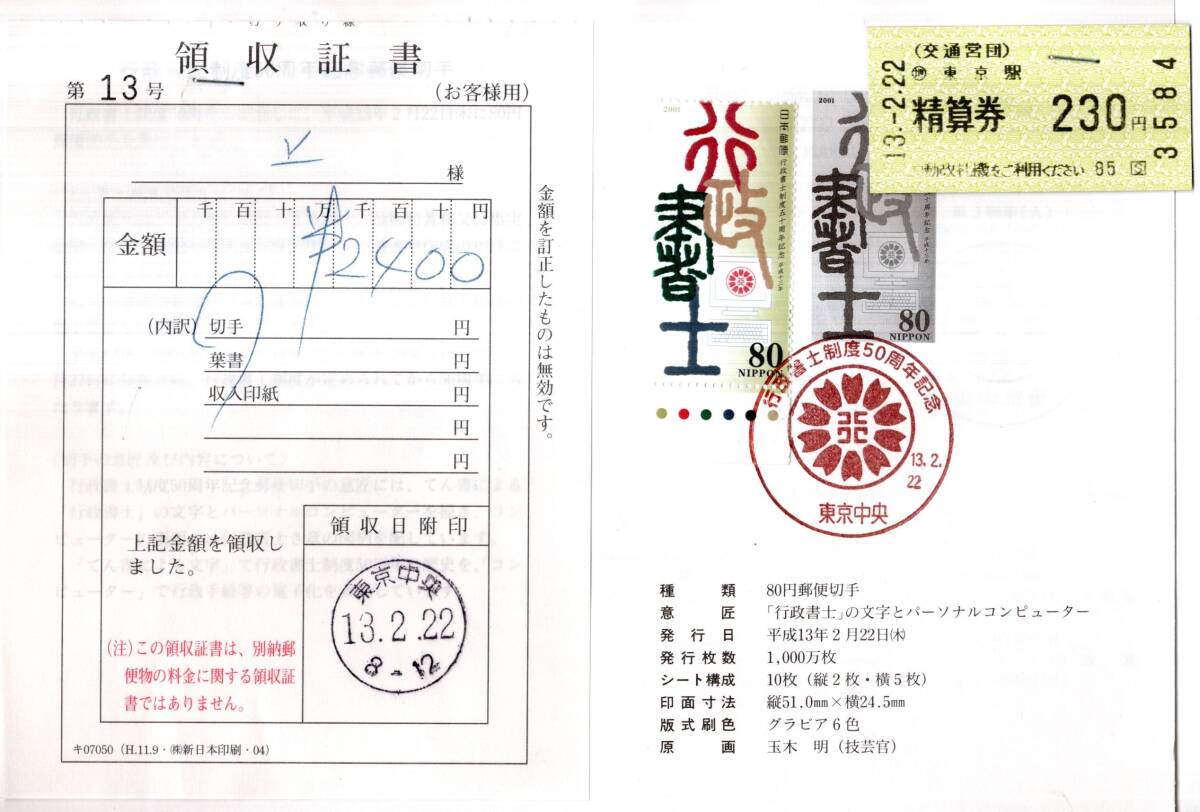 領収証書
第 13 号
(お客様用)
様
千 百 十 万 千 百 十 円
金額
¥2400
(内訳) 切手 円
葉書 円
収入印紙 円
円
円
領収日附印
上記金額を領収し
ました。
東京中央
13.2.22
8-12
(注)この領収証書は、別納郵
便物の料金に関する領収証
書ではありません。
金額を訂正したものは無効です。
キ07050 (H.11.9・㈱新日本印刷・04)
(交通営団)
東京駅
13.-2.22
精算券 230円
3584
をご利用ください 85
2001
日本郵便 行政書士制度五十周年記念 平成十三年
行政書士
80
NIPPON
2001
政書士
80
NIPPON
行政書士制度50周年記念
13.2.
22
東京中央
種類 80円郵便切手
意匠 「行政書士」の文字とパーソナルコンピューター
発行日 平成13年2月22日㈭
発行枚数 1,000万枚
シート構成 10枚(縦2枚・横5枚)
印面寸法 縦51.0㎜×横24.5㎜
版式刷色 グラビア6色
原画 玉木 明(技芸官)